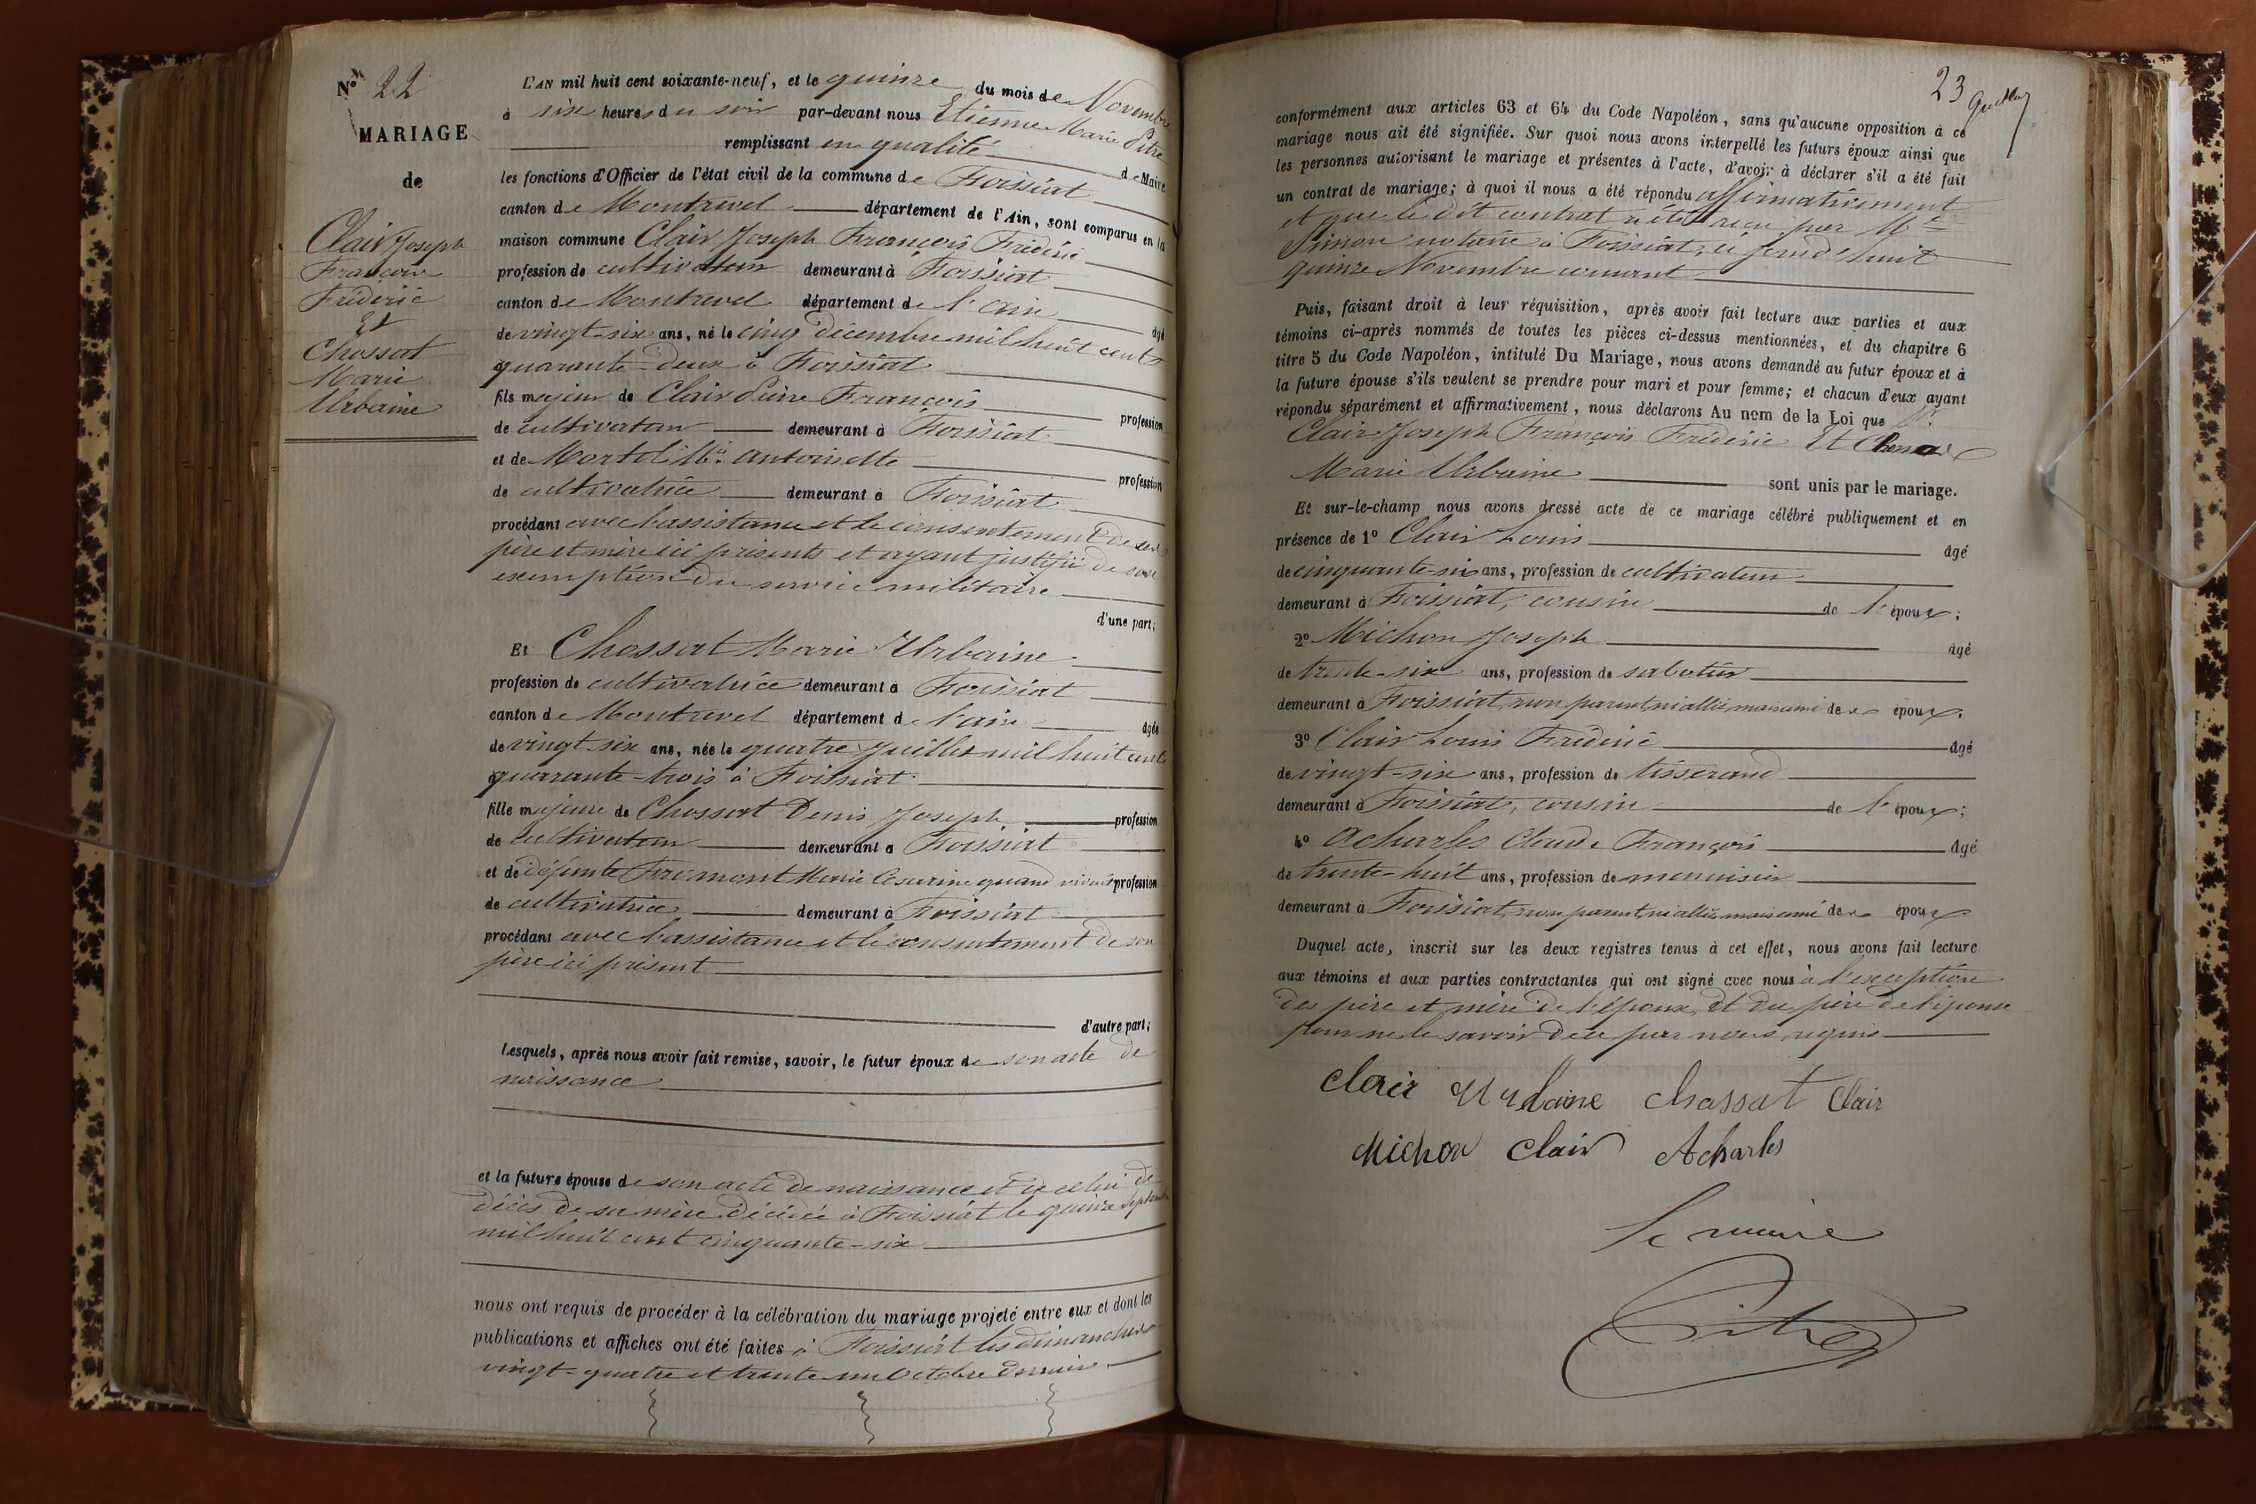 Nº 22
MARIAGE
de
Clair Joseph
François
Frédéric
Et
Chossat
Marie
Urbaine
L'AN mil huit cent soixante-neuf, et le quinze du mois de Novembre
à six heures du soir par-devant nous Etienne Marie Pitre
remplissant en qualité de Maire
les fonctions d'Officier de l'état civil de la commune de Foissiat
canton de Montrevel département de l'Ain, sont comparus en la
maison commune Clair Joseph François Frédéric
profession de cultivateur demeurant à Foissiat
canton de Montrevel département de l'ain âgé
de vingt-six ans, né le cinq décembre mil huit cent
quarante-deux à Foissiat
fils majeur de Clair Pierre François profession
de cultivateur demeurant à Foissiat
et de Mortel Mie antoinette profession
de cultivatrice demeurant à Foissiat
procédant avec l'assistance et le consentement de ses
père et mère ici présents et ayant justifié de son
exemption du service militaire
d'une part;
Et Chossat Marie Urbaine
profession de cultivatrice demeurant à Foissiat
canton de Montrevel département de l'ain âgée
de vingt-six ans, née le quatre Juillet mil huit cent
quarante-trois à Foissiat
fille majeure de Chossat Denis Joseph profession
de cultivateur demeurant à Foissiat
et de défunte Fromont Marie Césarine quand vivait profession
de cultivatrice demeurant à Foissiat
procédant avec l'assistance et le consentement de son
père ici présent
d'autre part;
Lesquels, après nous avoir fait remise, savoir, le futur époux de son acte de
naissance
et la future épouse de son acte de naissance et de celui de
décès de sa mère décédée à Foissiat le quinze septembre
mil huit cent cinquante-six
nous ont requis de procéder à la célébration du mariage projeté entre eux et dont les
publications et affiches ont été faites à Foissiat les dimanches
vingt-quatre et trente un Octobre dernier
23
conformément aux articles 63 et 64 du Code Napoléon, sans qu'aucune opposition à ce
mariage nous ait été signifiée. Sur quoi nous avons interpellé les futurs époux ainsi que
les personnes autorisant le mariage et présentes à l'acte, d'avoir à déclarer s'il a été fait
un contrat de mariage; à quoi il nous a été répondu affirmativement
et que le dit contrat a été reçu par Me
Simon notaire à Foissiat, ce jourd'huit
quinze Novembre courant
Puis, faisant droit à leur réquisition, après avoir fait lecture aux parties et aux
témoins ci-après nommés de toutes les pièces ci-dessus mentionnées, et du chapitre 6
titre 5 du Code Napoléon, intitulé Du Mariage, nous avons demandé au futur époux et à
la future épouse s'ils veulent se prendre pour mari et pour femme; et chacun d'eux ayant
répondu séparément et affirmativement, nous déclarons Au nom de la Loi que
Clair Joseph François Frédéric Et Chossat
Marie Urbaine sont unis par le mariage.
Et sur-le-champ nous avons dressé acte de ce mariage célébré publiquement et en
présence de 1º Clair Louis âgé
de cinquante-six ans, profession de cultivateur
demeurant à Foissiat, cousin de l' époux;
2º Michon Joseph âgé
de trente-six ans, profession de sabotier
demeurant à Foissiat, non parent, ni allié, mais ami des époux.
3º Clair Louis Frédéric âgé
de vingt-six ans, profession de tisserand
demeurant à Foissiat, cousin de l' époux;
4º Acharles Claude François âgé
de trente-huit ans, profession de menuisier
demeurant à Foissiat, non parent, ni allié, mais ami des époux
Duquel acte, inscrit sur les deux registres tenus à cet effet, nous avons fait lecture
aux témoins et aux parties contractantes qui ont signé avec nous à l'exception
des père et mère de l'époux, et du père de l'épouse
pour ne le savoir de ce par nous requis
Clair Urbaine Chossat Clair
Michon Clair Acharles
Le maire
Pitre